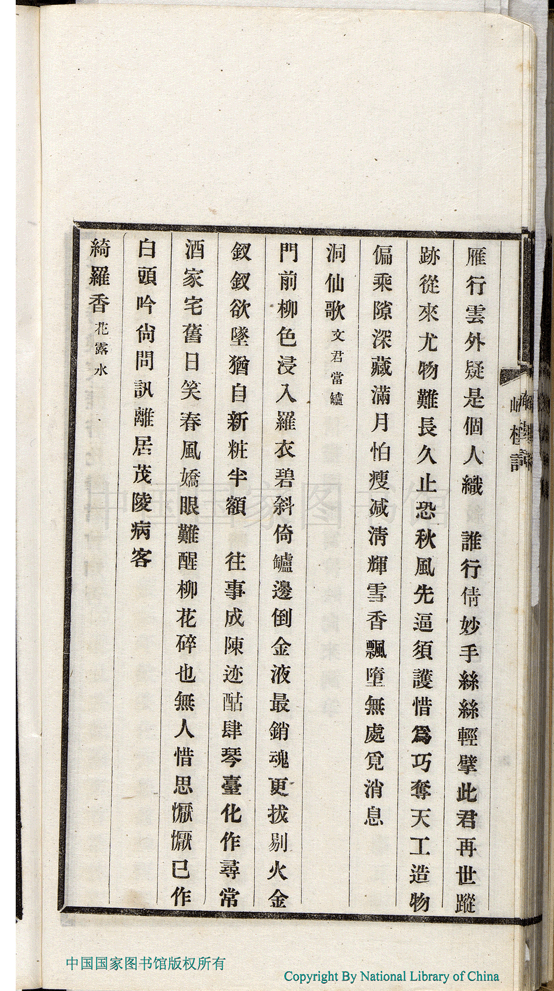 雁行雲外疑是個人織　誰行倩妙手絲絲輕擘此君再世蹤
跡從來尤物難長久止恐秋風先逼須護惜爲巧奪天工造物
偏乘隙深藏滿月怕瘦減淸輝雪香飄墮無處覓消息
洞仙歌 文君當罏
門前柳色浸入羅衣碧斜倚罏邊倒金液最銷魂更拔剔火金
釵釵欲墜猶自新粧半額　往事成陳迹酤肆琴臺化作尋常
酒家宅舊日笑春風嬌眼難醒柳花碎也無人惜思懨懨已作
白頭吟尙問訊離居茂陵病客
綺羅香 花露水
中国国家图书馆
中国国家图书馆版权所有
Copyright By National Library of China